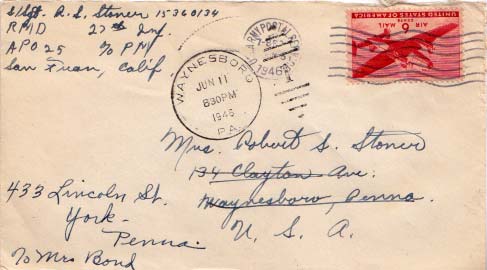 S/Sgt. R.S. Stoner 15360134
RMD 27th Inf.
APO 25 % PM
San Fran, Calif
WAYNESBORO
JUN 11
830PM
1946
PA.
ARMY POSTAL SER
1946
UNITED STATES OF AMERICA
6 CENTS
AIR MAIL
Mrs. Robert S. Stoner
134 Clayton Ave.
Waynesboro, Penna.
U. S. A.
433 Lincoln St.
York-
Penna.
% Mrs Bond